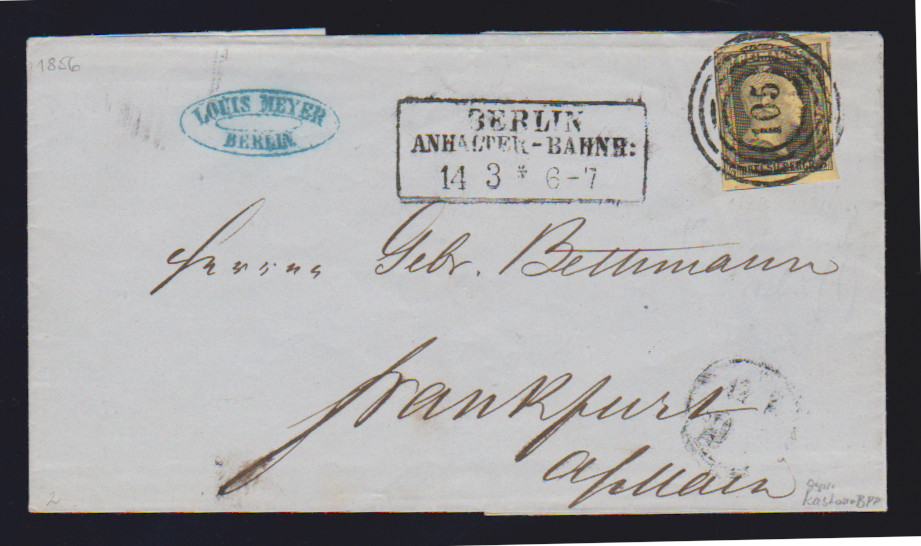 1856
LOUIS MEYER
BERLIN.
BERLIN
ANHALTER-BAHNH:
14 3 * 6-7
105
Herren Gebr. Bethmann
Frankfurt
a/Main
2
BPP